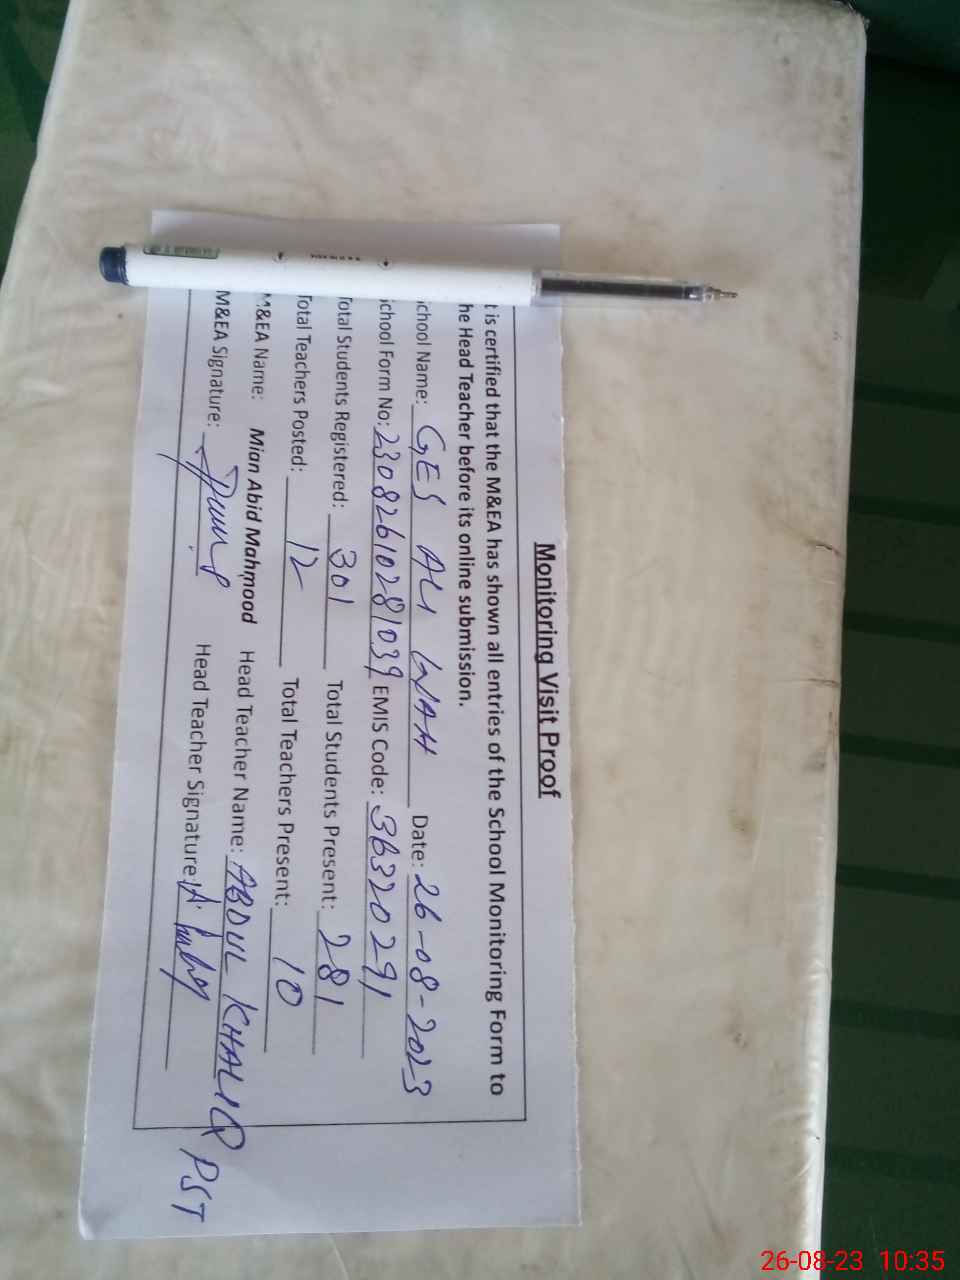 Monitoring Visit Proof
t is certified that the M&EA has shown all entries of the School Monitoring Form to
he Head Teacher before its online submission.
chool Name: GES ALI WAH Date: 26-08-2023
chool Form No: 23082610281039 EMIS Code: 36320291
otal Students Registered: 301 Total Students Present: 281
Total Teachers Posted: 12 Total Teachers Present: 10
M&EA Name: Mian Abid Mahmood Head Teacher Name: ABDUL KHALIQ PST
M&EA Signature: Head Teacher Signature:
26-08-23 10:35